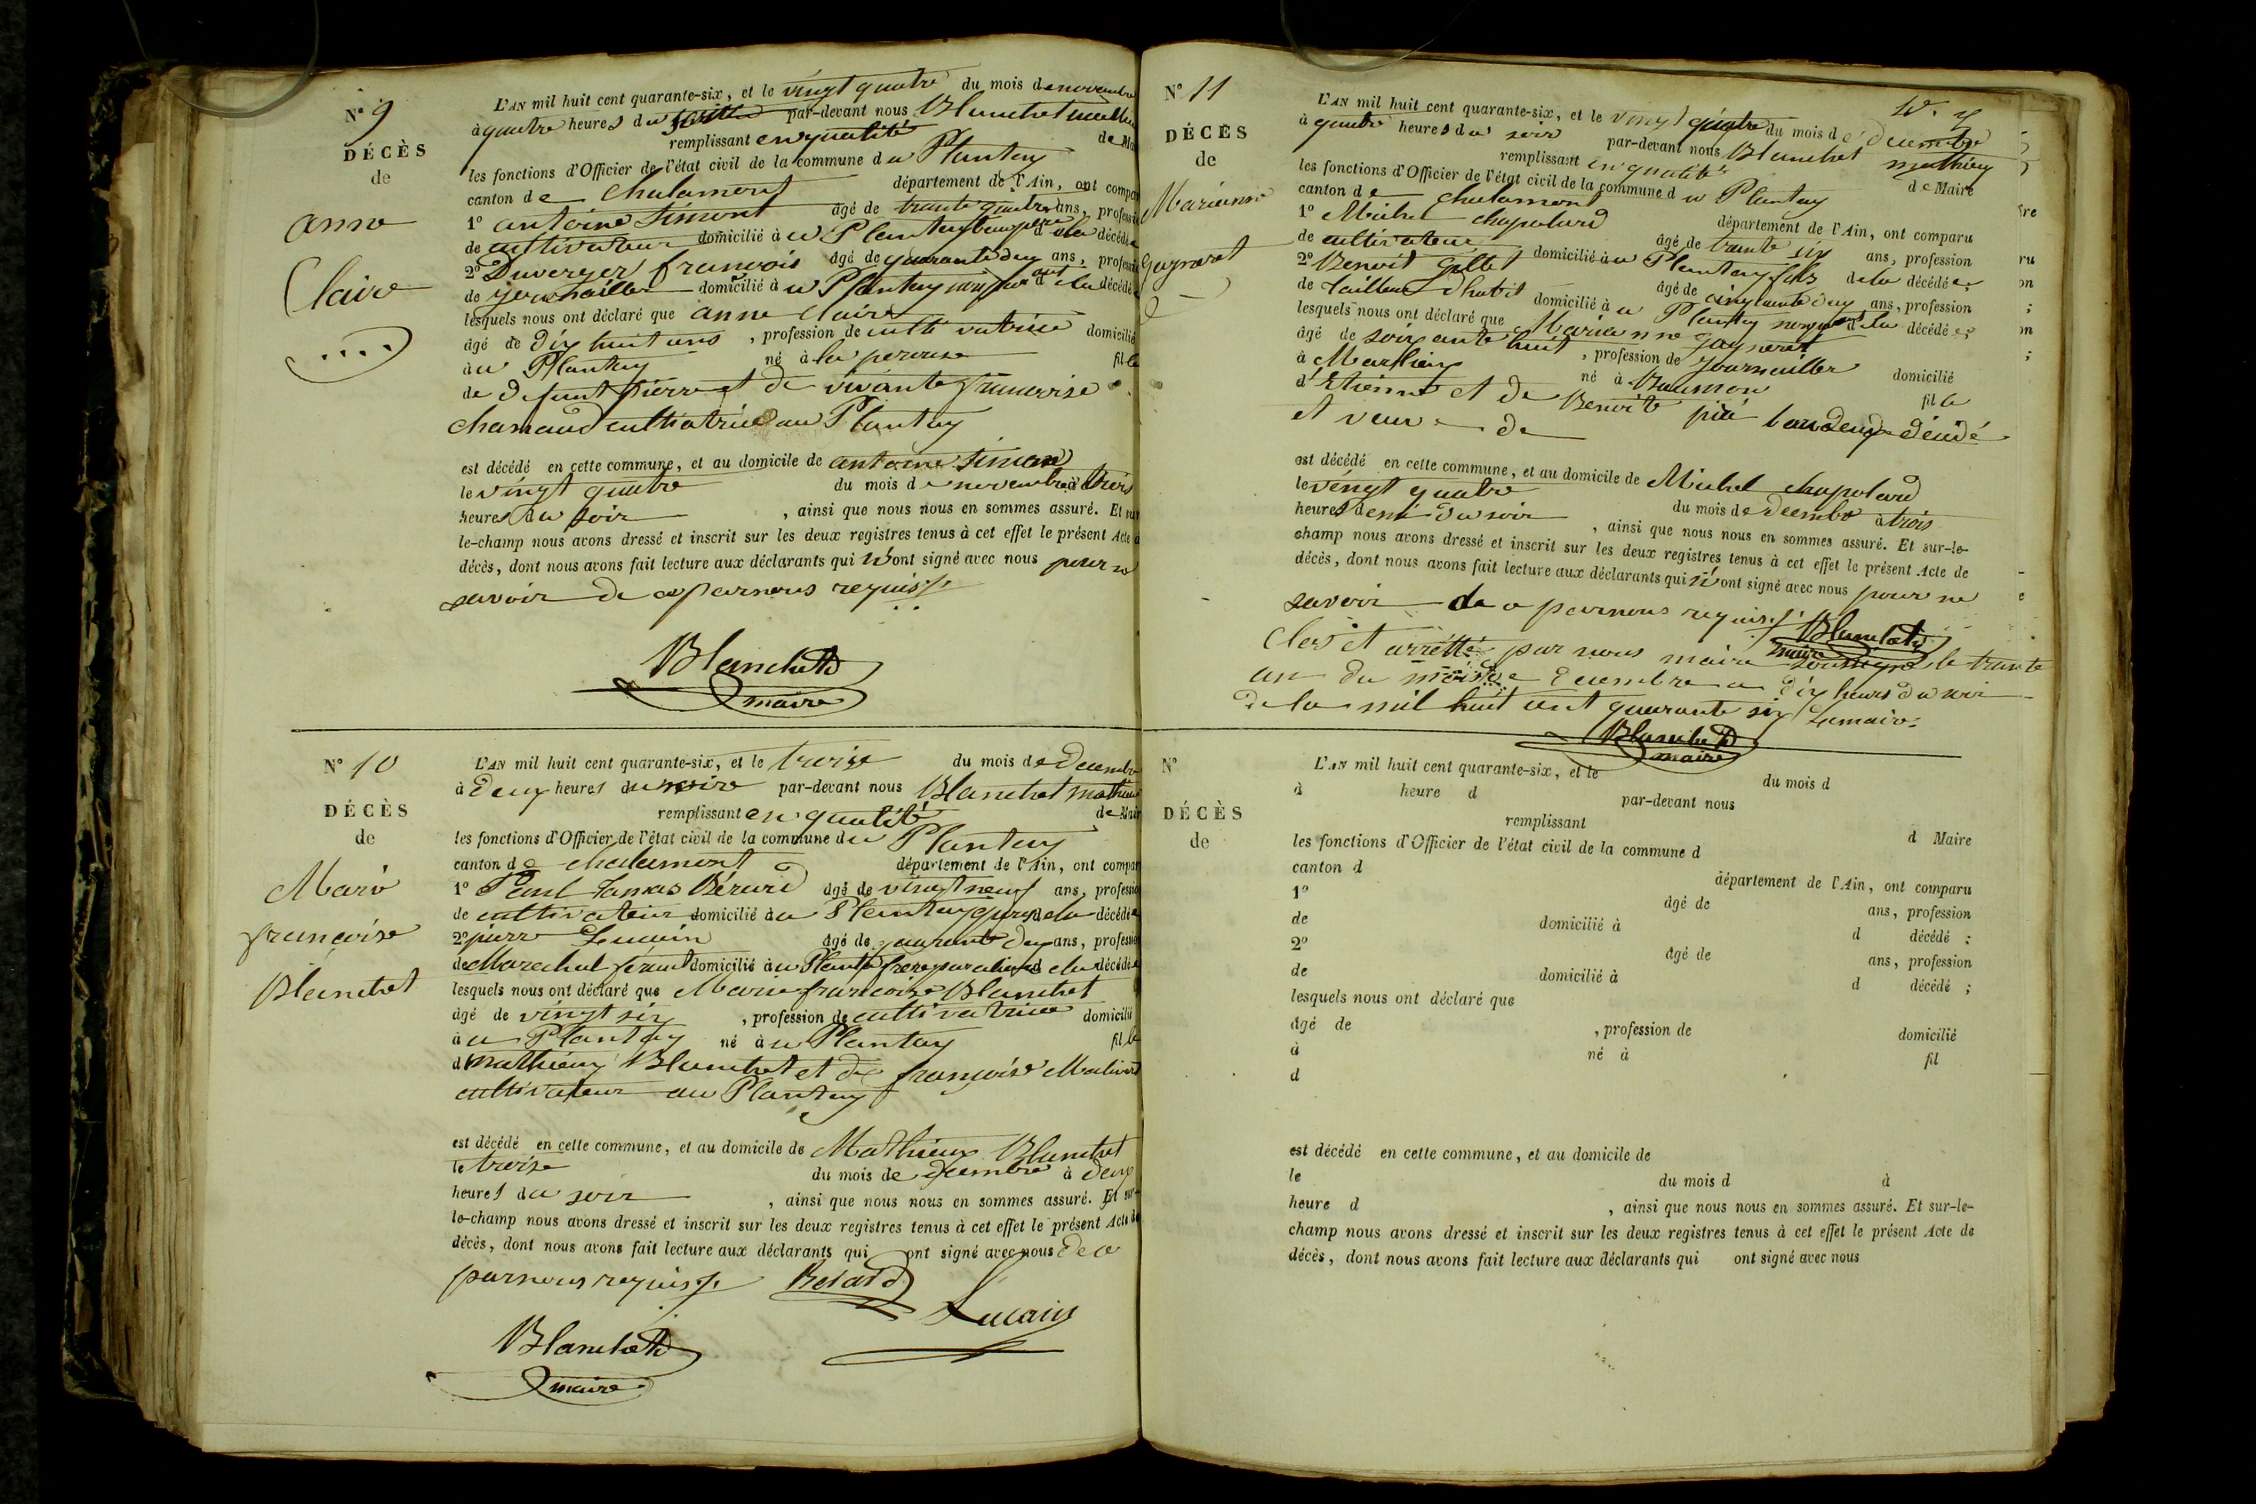 N° 9
DÉCÈS
de
anne
Claire
L'AN mil huit cent quarante-six, et le vingt quatre du mois de novembre
à quatre heures du par-devant nous Blanchet
remplissant en qualité de Mai
les fonctions d'Officier de l'état civil de la commune du Plantay
canton de Chalamont département de l'Ain, ont compar
1° antoine Simont âgé de trante quatre ans, professio
de cultivateur domicilié à u Plantay beaupere de la décédée
2° Duverger francois âgé de quarante deux ans, professio
de journailler domicilié à u Plantay de la décédée
lesquels nous ont déclaré que anne Claire
âgé de dix huit ans, profession de cultivatrice domicilié
à u Plantay né à la perouse fille
de defunt pierre et de vivante francoise
chanaud cultivatrice au Plantay
est décédé en cette commune, et au domicile de antoine Simon
le vingt quatre du mois de novembre à trois
heures du soir, ainsi que nous nous en sommes assuré. Et sur
le-champ nous avons dressé et inscrit sur les deux registres tenus à cet effet le présent Acte d
décès, dont nous avons fait lecture aux déclarants qui n'ont signé avec nous pour ne
savoir de ce par nous requis
Blanchet
maire
N° 10
DÉCÈS
de
Marie
francoise
Blanchet
L'AN mil huit cent quarante-six, et le treize du mois de decembre
à deux heures du soire par-devant nous Blanchet mathieu
remplissant en qualité de Mair
les fonctions d'Officier de l'état civil de la commune du Plantay
canton de chalamont département de l'Ain, ont compar
1° Paul Bérard âgé de vingt neuf ans, professio
de cultivateur domicilié à u Plantay epoux de la décédée
2° pierre Lucain âgé de quarante deux ans, professio
de Marechal ferant domicilié à u Plantay frere par aliance de la décédée
lesquels nous ont déclaré que Marie francoise Blanchet
âgé de vingt six, profession de cultivatrice domicilié
à u Plantay né à u Plantay fille
d mathieux Blanchet et de françoise
cultivateur au Plantay
est décédé en cette commune, et au domicile de Mathieux Blanchet
le treize du mois de decembre à deux
heures du soir, ainsi que nous nous en sommes assuré. Et sur-
le-champ nous avons dressé et inscrit sur les deux registres tenus à cet effet le présent Acte de
décès, dont nous avons fait lecture aux déclarants qui ont signé avec nous de ce
par nous requis
Berard
Lucain
Blanchet
maire
N° 11
DÉCÈS
de
Marianne
Gayneret
L'AN mil huit cent quarante-six, et le vingt quatre du mois de decembre
à quatre heures du soir par-devant nous Blanchet mathieu
remplissant en qualité de Maire
les fonctions d'Officier de l'état civil de la commune du Plantay
canton de chalamont département de l'Ain, ont comparu
1° Michel chapolard âgé de trante six ans, profession
de cultivateur domicilié à u Plantay fils de la décédée;
2° Benoit Gillet âgé de cinquante deux ans, profession
de tailleur d'habit domicilié à u Plantay de la décédée;
lesquels nous ont déclaré que Marianne Gayneret
âgé de soixante huit, profession de journailler domicilié
à Marlieux né à fille
d'Etienne et de Benoite tous deux décédé
et veuve de
est décédé en cette commune, et au domicile de Michel chapolard
le vingt quatre du mois de decembre à trois
heures demi du soir, ainsi que nous nous en sommes assuré. Et sur-le-
champ nous avons dressé et inscrit sur les deux registres tenus à cet effet le présent Acte de
décès, dont nous avons fait lecture aux déclarants qui n'ont signé avec nous pour ne
savoir de ce par nous requis
Blanchet
maire
Clos et arrêtté par nous maire soussigné le trante
un du mois de decembre a dix heures du soir
de la mil huit cent quarante six Le maire:
Blanchet
maire
N°
DÉCÈS
de
L'AN mil huit cent quarante-six, et le du mois d
à heure d par-devant nous
remplissant d Maire
les fonctions d'Officier de l'état civil de la commune d
canton d département de l'Ain, ont comparu
1° âgé de ans, profession
de domicilié à d décédé :
2° âgé de ans, profession
de domicilié à d décédé ;
lesquels nous ont déclaré que
âgé de , profession de domicilié
à né à fil
d
est décédé en cette commune, et au domicile de
le du mois d à
heure d , ainsi que nous nous en sommes assuré. Et sur-le-
champ nous avons dressé et inscrit sur les deux registres tenus à cet effet le présent Acte de
décès, dont nous avons fait lecture aux déclarants qui ont signé avec nous